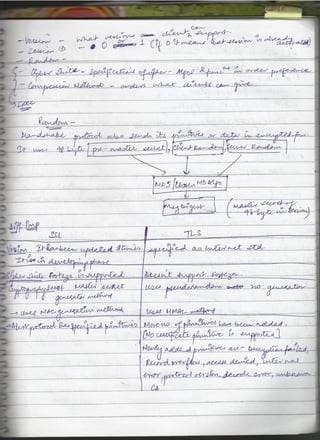 - Version - what versions client can support.
- Session ID - 0 or 1 (if 0 it means that session is already
- Random -
- Cipher Suite - Specifications of cipher - Algos in order preference
- Compression Methods - orders what clients can give.
Random -
Handshake protocol also sends its primitives or data in encrypted
It uses 48 byte pre-master secret, client Random, Server Random
MD5/ MD Algo
Msg Digest
(Master secret of 48 byte in version)
Diff.
SSL TLS
Version It has been updated 3 times specified as Internet std
It is in developing phase
Cipher Suite Fortezza is supported Doesn't support Fortezza.
Cryptography secret Master secret uses pseudorandom no generator
generator method
→ uses MAC generation method Uses HMAC method
→ Alert protocol has specified primitives More no. of primitives has been added.
[No certificate primitive is supported]
Newly added primitives are - Decryption failed,
Record overflow, access denied, internal
error, protocol version, decode error, unknown
CA